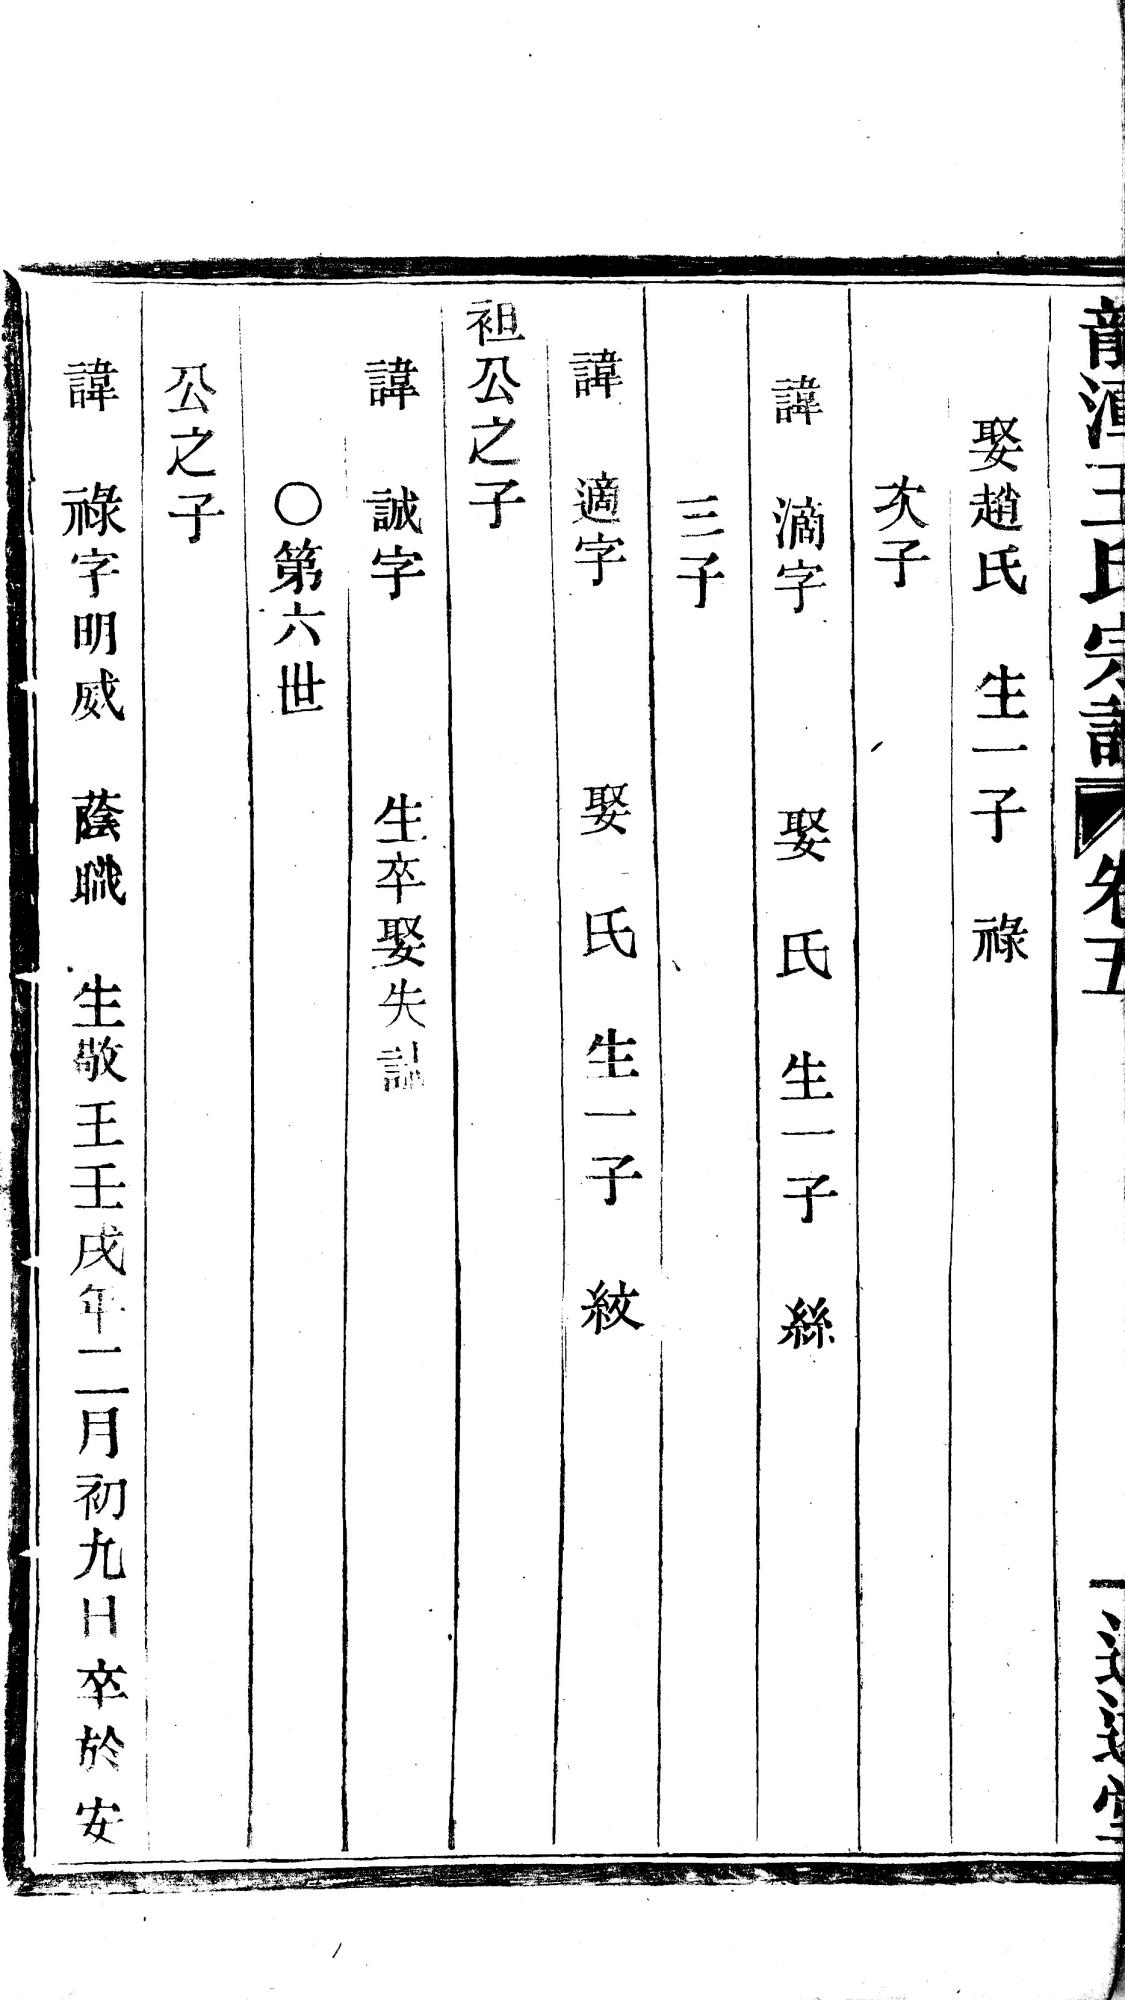 龍潭王氏宗譜 卷五 一
娶趙氏 生一子 祿
次子
諱 滴字 娶 氏 生一子 絲
三子
諱 適字 娶 氏 生一子 紋
袒公之子
諱 誠字 生卒娶失誌
○第六世
公之子
諱 祿字明威 蔭職 生敬王壬戌年二月初九日卒於安